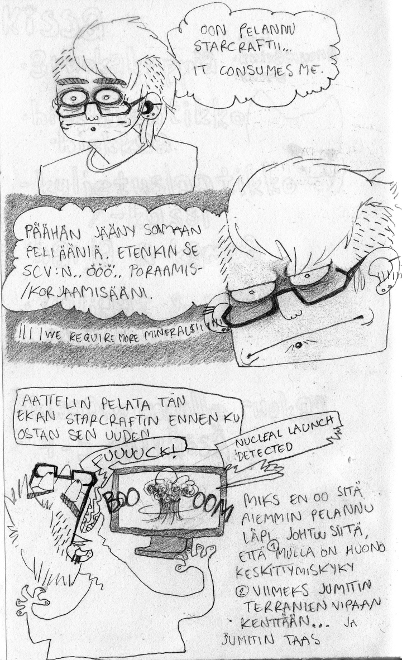 OON PELANNU
STARCRAFTII...
IT CONSUMES ME.
PÄÄHÄN JÄÄNY SOIMAAN
PELIÄÄNIÄ. ETENKIN SE
SCV:N.. ÖÖÖ.. PORAAMIS-
/KORJAAMISÄÄNI.
WE REQUIRE MORE MINERALS
AATTELIN PELATA TÄN
EKAN STARCRAFTIN ENNEN KU
OSTAN SEN UUDEN
FUUUUCK!
NUCLEAL LAUNCH
DETECTED
BOO OOM
MIKS EN OO SITÄ
AIEMMIN PELANNU
LÄPI, JOHTUU SIITÄ,
ETTÄ MULLA ON HUONO
KESKITTYMISKYKY
VIIMEKS JUMITIN
TERRANIEN VIPAAN
KENTTÄÄN... JA
JUMITIN TAAS